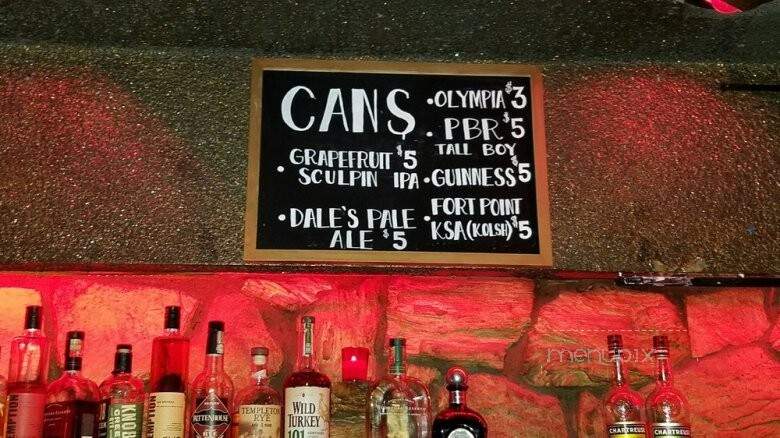 CANS
• GRAPEFRUIT $5
SCULPIN IPA
• DALE'S PALE
ALE $5
• OLYMPIA $3
• PBR $5
TALL BOY
• GUINNESS $5
• FORT POINT
KSA (KOLSH) $5
menupix
KNOB
CREEK
RITTENHOUSE
RYE
TEMPLETON
RYE
WILD
TURKEY
101
CHARTREUSE
CHARTREUSE